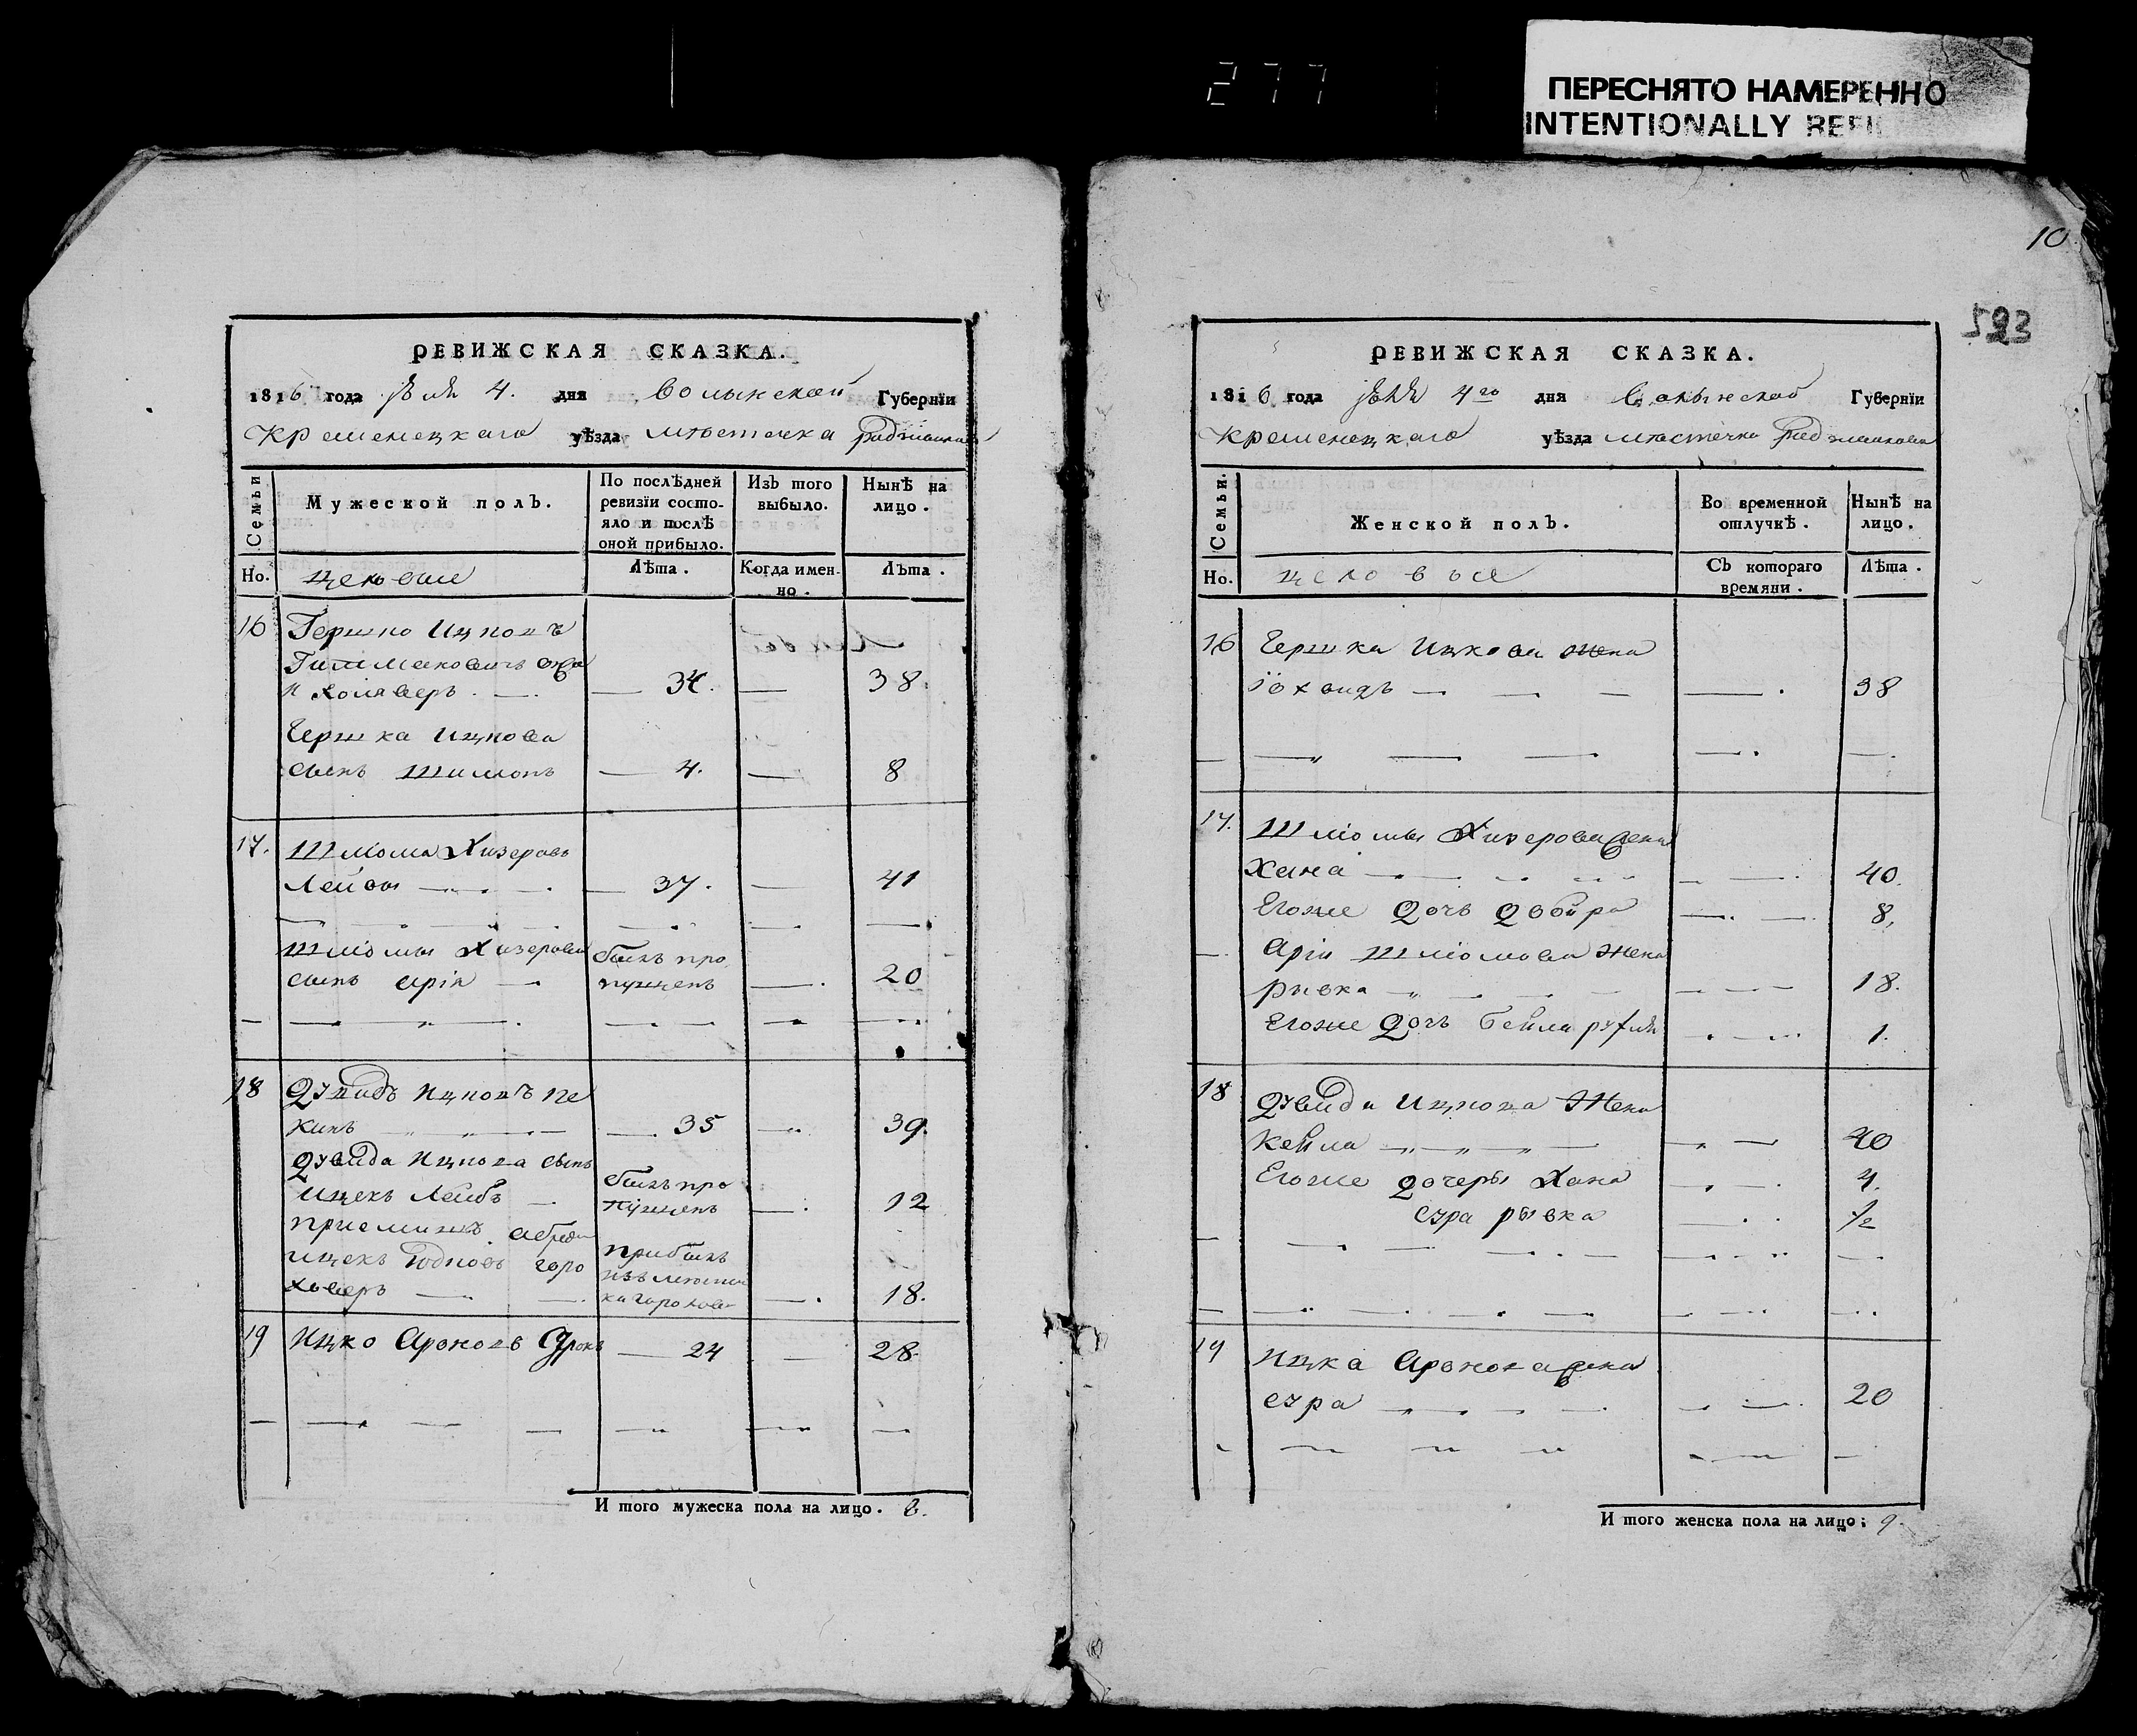 277
ПЕРЕСНЯТО НАМЕРЕННО
INTENTIONALLY REFI
10
РЕВИЖСКАЯ СКАЗКА.
1816 года 4. дня Волынской Губернїи
Кременецкаго уѣзда мѣстечка
Семьи
Мужеской полъ.
По послѣдней ревизїи состо-
яло и послѣ
оной прибыло.
Изъ того выбыло.
Нынѣ на лицо.
Но.
Лѣта.
Когда имен-
но.
Лѣта.
16 Гершко Ицковъ
34. 38.
Гершка Ицкова
сынъ Шимонъ 4. 8
17. Шліома Хизеровъ
Лейбы 37. 41
Шліомы Хизерова былъ про
сынъ Арія пущенъ 20
18 Ицковъ Пе
кинъ 35 39.
Ицкова сынъ былъ про
Ицекъ Лейбъ пущенъ 12
приемышъ
Ицекъ горо прибылъ
ховеръ 18.
19 Ицко Ароновъ 24 28.
И того мужеска пола на лицо. 8.
РЕВИЖСКАЯ СКАЗКА.
1816 года 4го дня Волынской Губернїи
Кременецкаго уѣзда мѣстечка
Семьи.
Женской полъ.
Во временной отлучкѣ.
Нынѣ на лицо.
Но.
Съ котораго времяни.
Лѣта.
16 Гершка Ицкова жена
іохвидъ 38
17. Шліомы Хизерова жена
Хана 40.
Егоже дочь двойра 8,
Арія Шліомова жена
рывка 18.
Егоже дочь Бейла 1.
18 Ицкова жена
Кейла 40
Егоже дочеры Хана 4.
сура рывка 1/2
19 Ицка Аронова жена
сура 20
И того женска пола на лицо: 9.